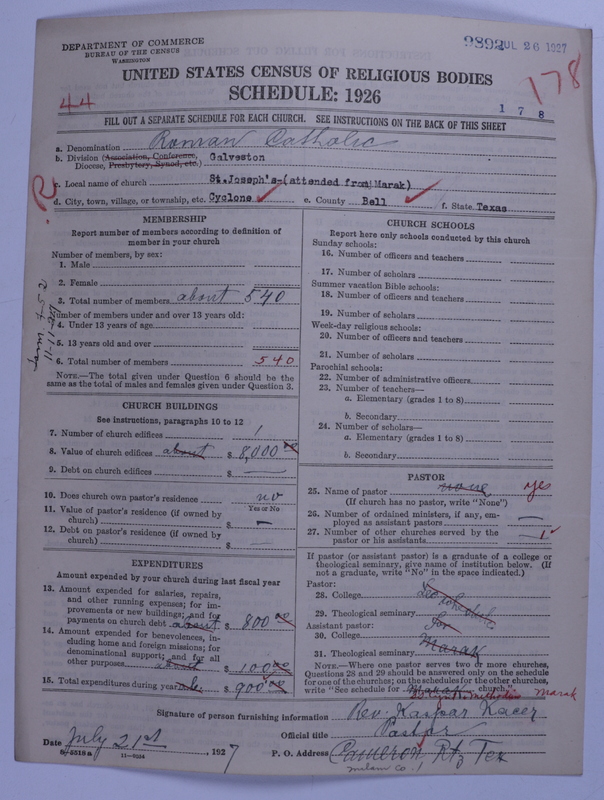 DEPARTMENT OF COMMERCE
BUREAU OF THE CENSUS
WASHINGTON
9892 JUL 26 1927
UNITED STATES CENSUS OF RELIGIOUS BODIES
SCHEDULE: 1926
44
178
1 7 8
FILL OUT A SEPARATE SCHEDULE FOR EACH CHURCH. SEE INSTRUCTIONS ON THE BACK OF THIS SHEET
a. Denomination Roman Catholic
b. Division (Association, Conference, Diocese, Presbytery, Synod, etc.) Galveston
c. Local name of church St. Joseph's-(attended from Marak)
d. City, town, village, or township, etc. Cyclone e. County Bell f. State Texas
R
MEMBERSHIP
Report number of members according to definition of
member in your church
Number of members, by sex:
1. Male
2. Female
3. Total number of members about 540
Number of members under and over 13 years old:
4. Under 13 years of age
5. 13 years old and over
6. Total number of members 540
NOTE.—The total given under Question 6 should be the
same as the total of males and females given under Question 3.
11-11-27
CHURCH BUILDINGS
See instructions, paragraphs 10 to 12
7. Number of church edifices 1
8. Value of church edifices about $ 8,000 00
9. Debt on church edifices $ —
10. Does church own pastor's residence no
Yes or No
11. Value of pastor's residence (if owned by
church) $ —
12. Debt on pastor's residence (if owned by
church) $ —
EXPENDITURES
Amount expended by church during last fiscal year
13. Amount expended for salaries, repairs,
and other running expenses; for im-
provements or new buildings; and for
payments on church debt about $ 800 00
14. Amount expended for benevolences, in-
cluding home and foreign missions; for
denominational support; and for all
other purposes about $ 100.00
15. Total expenditures during year $ 900 00
CHURCH SCHOOLS
Report here only schools conducted by this church
Sunday schools:
16. Number of officers and teachers
17. Number of scholars
Summer vacation Bible schools:
18. Number of officers and teachers
19. Number of scholars
Week-day religious schools:
20. Number of officers and teachers
21. Number of scholars
Parochial schools:
22. Number of administrative officers
23. Number of teachers—
a. Elementary (grades 1 to 8)
b. Secondary
24. Number of scholars—
a. Elementary (grades 1 to 8)
b. Secondary
PASTOR
25. Name of pastor none yes
(If church has no pastor, write "None")
26. Number of ordained ministers, if any, em-
ployed as assistant pastors —
27. Number of other churches served by the
pastor or his assistants 1
If pastor (or assistant pastor) is a graduate of a college or
theological seminary, give name of institution below. (If
not a graduate, write "No" in the space indicated.)
Pastor:
28. College See schedule
29. Theological seminary for
Assistant pastor:
30. College Marak
31. Theological seminary
NOTE.—Where one pastor serves two or more churches,
Questions 28 and 29 should be answered only on the schedule
for one of the churches; on the schedules for the other churches,
write "See schedule for Marak church." Marak
Signature of person furnishing information Rev. Kaspar Kacer
Official title Pastor
Date July 21st, 1927 P. O. Address Cameron, Rt 2 Tex
8-5518a 11-9034
Milam Co.